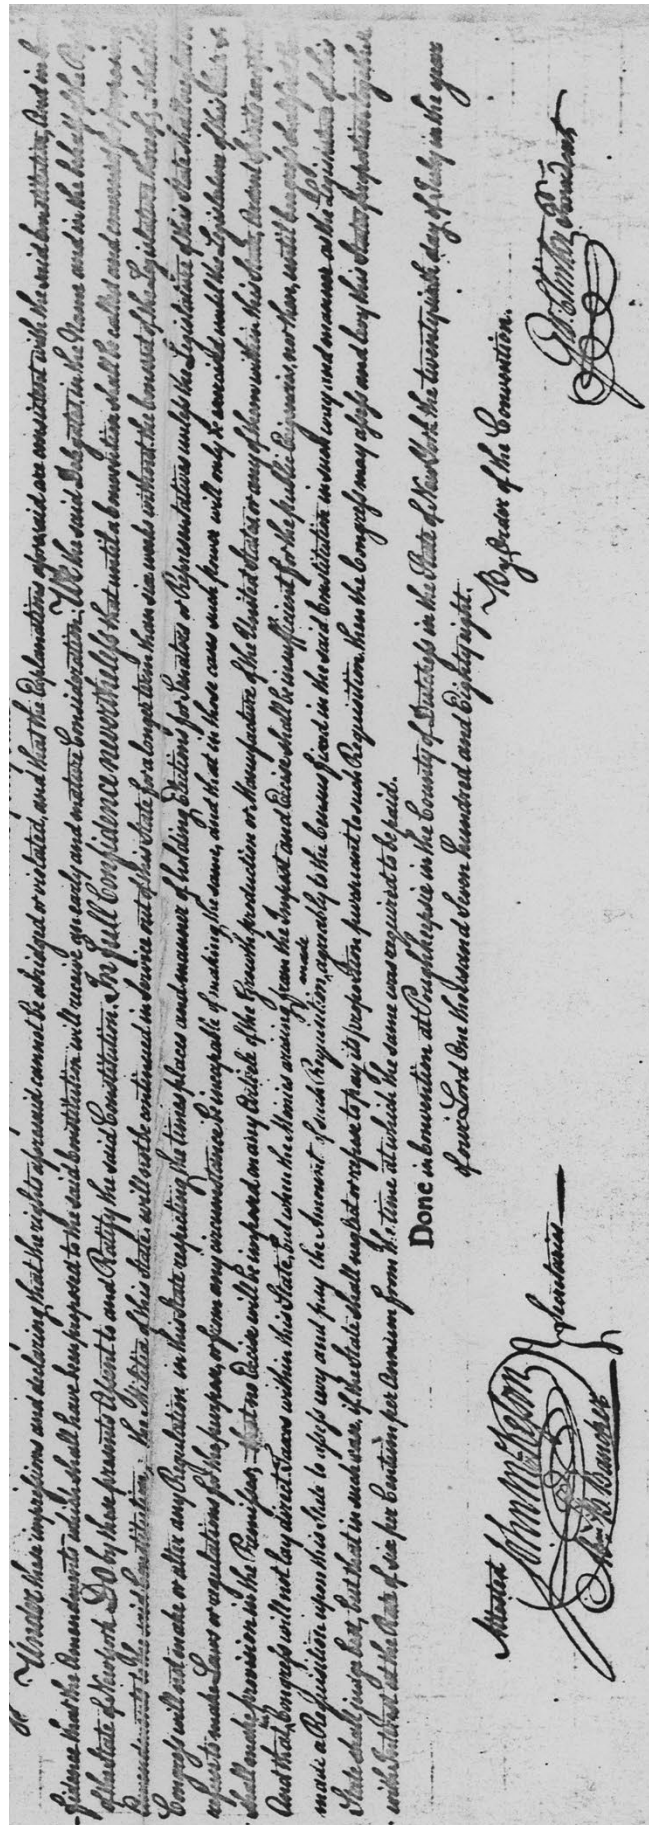 Under these impressions and declaring that the rights aforesaid cannot be abridged or violated, and that the Explanations aforesaid are consistent with the said Constitution, And in
fidence that the Amendments which shall have been proposed to the said Constitution will receive an early and mature Consideration: We the said Delegates, in the Name and in the behalf of the
of the State of New York Do by these presents Assent to and Ratify the said Constitution. In full Confidence nevertheless that until a Convention shall be called and convened for proposing
Amendments to the said Constitution, the Militia of this State will not be continued in Service out of this State for a longer term than six weeks without the Consent of the Legislature thereof;
Congress will not make or alter any Regulation in this State respecting the times places and manner of holding Elections for Senators or Representatives unless the Legislature of this State shall
refuse to make Laws or regulations for the purpose, or from any circumstance be incapable of making the same, and that in those cases such power will only be exercised until the Legislature of this State
shall make provision in the Premises, that no Excise will be imposed on any Article of the Growth production or Manufacture of the United States, or any of them within this State, Ardent Spirits
And that Congress will not lay direct Taxes within this State, but when the Monies arising from the Impost and Excise shall be insufficient for the public Exigencies, nor then, until Congress shall first have
made a Requisition upon this State to assess levy and pay the Amount of such Requisition made agreably to the Census fixed in the said Constitution in such way and manner as the Legislature of this
State shall judge best, but that in such case, if the State shall neglect or refuse to pay its proportion pursuant to such Requisition, then the Congress may assess and levy this States proportion
with Interest at the Rate of six per Centum per Annum from the time at which the same was required to be paid.
Done in Convention at Poughkeepsie in the County of Dutchess in the State of New York the twenty sixth day of July in the year
of our Lord One thousand Seven hundred and Eighty eight.
By Order of the Convention.
Geo: Clinton President
Attested
John McKesson
Abm. B. Bancker
Secretaries